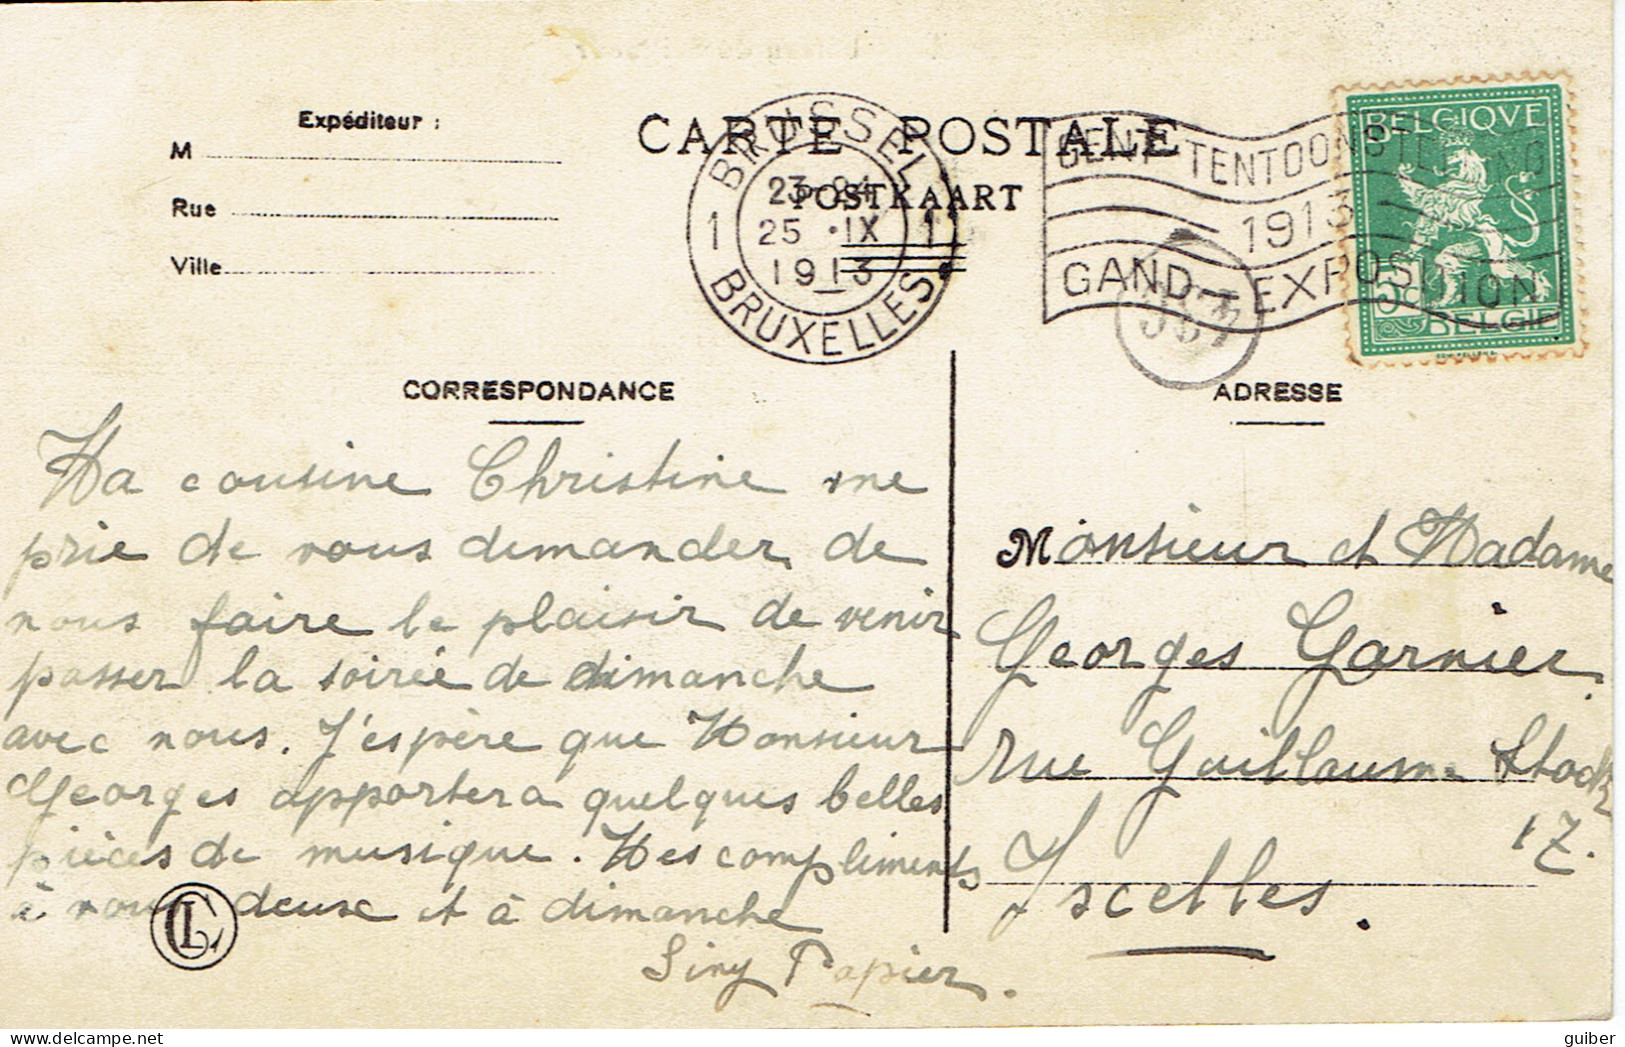 Expéditeur :
M
Rue
Ville
CARTE POSTALE
POSTKAART
BRUSSEL
23-24
25 · IX
1913
1 1
BRUXELLES
GENT-TENTOONSTELLING
1913
GAND-EXPOSITION
BELGIQVE
5c
BELGIË
CORRESPONDANCE
Ma cousine Christine me
prie de vous demander de
nous faire le plaisir de venir
passer la soirée de dimanche
avec nous. J'espère que Monsieur
Georges apportera quelques belles
pièces de musique. Mes compliments
à vous deux et à dimanche
Siny Papier.
CL
ADRESSE
Monsieur et Madame
Georges Garnier.
rue Guillaume Stocq
17.
Ixcelles.
guiber